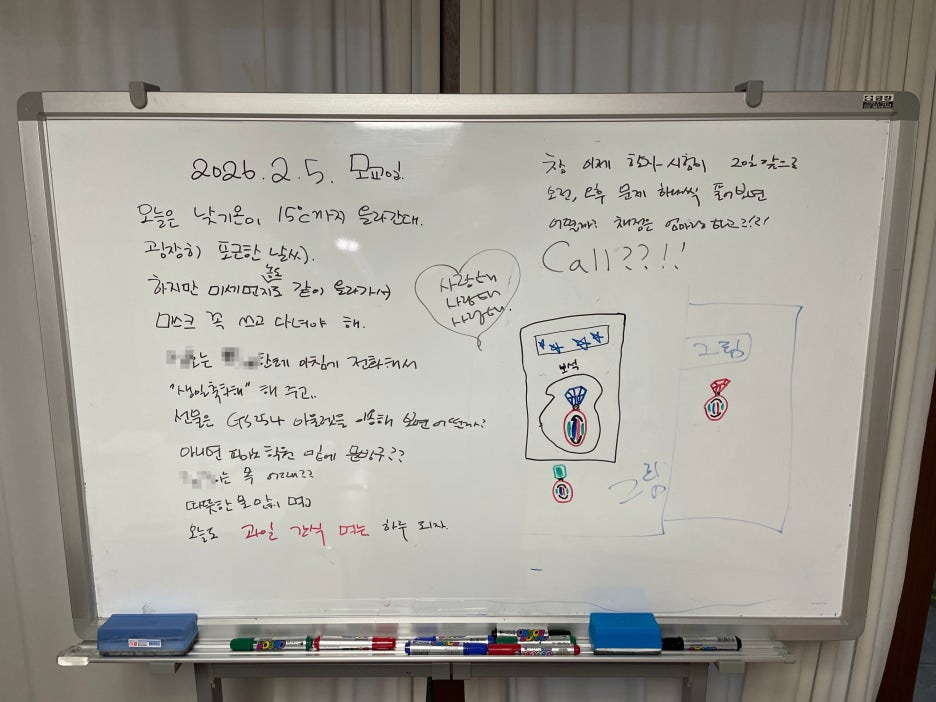 2026. 2. 5. 목요일.
오늘은 낮기온이 15℃까지 올라간대.
굉장히 포근한 날씨).
하지만 미세먼지도 농도 같이 올라가서
마스크 꼭 쓰고 다녀야 해.
는 한테 아침에 전화해서
"생일축하해" 해 주고..
선물은 GS25나 아울렛을 이용해 보면 어떨까?
아니면 학원 밑에 문방구??
는 목 어때??
따뜻한 물 많이 먹고
오늘도 과일 간식 먹는 하루 되자.
사랑해
사랑해
사랑해.
참 이제 한자시험이 20일 앞으로
오전, 오후 문제 하나씩 풀어보면
어떨까? 채점은 엄마랑 하고?!?!
Call??!!
보석
그림
그림